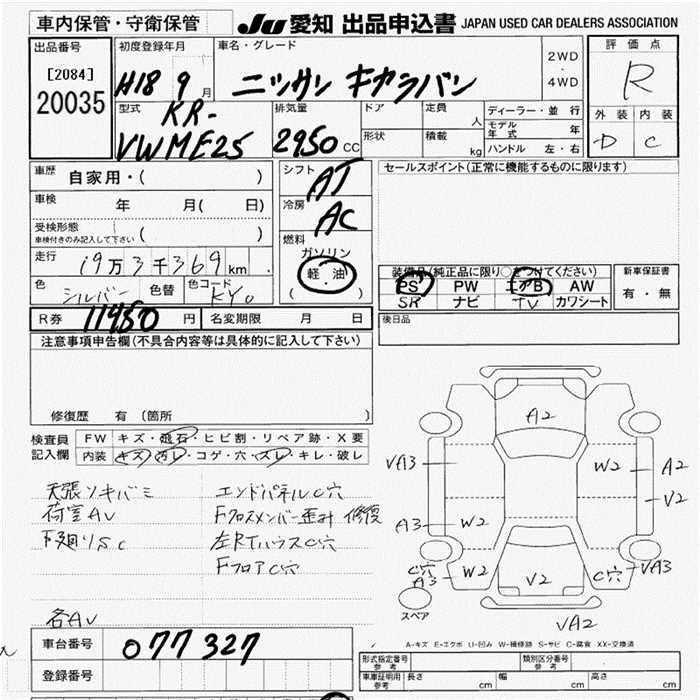 車内保管・守衛保管 Ju 愛知 出品申込書 JAPAN USED CAR DEALERS ASSOCIATION
出品番号 初度登録年月 車名・グレード 評価点
[2084] H18 9 月 ニッサン キャラバン 2WD ・ 4WD R
20035
型式 KR- 排気量 ドア 定員 人 ディーラー・並行 外装 内装
VWME25 2950 cc 形状 積載 kg モデル年式 年 D C
ハンドル 左・右
車歴 自家用・( ) シフト AT セールスポイント(正常に機能するものに限ります)
車検 年 月( 日) 冷房 AC
受検形態 ( )
車検付きのみ記入して下さい
燃料
ガソリン
走行 19万3千369 km 軽油 装備品(純正品に限り○をつけてください) 新車保証書
色 シルバー 色替 色コード KY0 ( ) PS PW エアB AW 有・無
SR ナビ TV カワシート
R券 11450 円 名変期限 月 日 後日品
注意事項申告欄(不具合内容等は具体的に記入して下さい)
修復歴 有 (箇所
検査員 FW キズ・飛石・ヒビ割・リペア跡・X要
記入欄 内装 キズ・汚レ・コゲ・穴・スレ・キレ・破レ
天張ソキバミ エンドパネルC穴
荷室AV Fクロスメンバー歪ミ 修復
下廻りSC 左RTハウスC穴
FフロアC穴
各AV
A2
VA3 W2 A2
V2
A3 W2
C穴 A3 W2 V2 C穴 VA3
スペア VA2
A-キズ E-エクボ U-凹み W-補修跡 S-サビ C-腐食 XX-交換済
車台番号 077327
登録番号
形式指定番号 参考 類別区分番号 参考
車庫証明用 参考 長さ cm 幅 cm 高さ cm